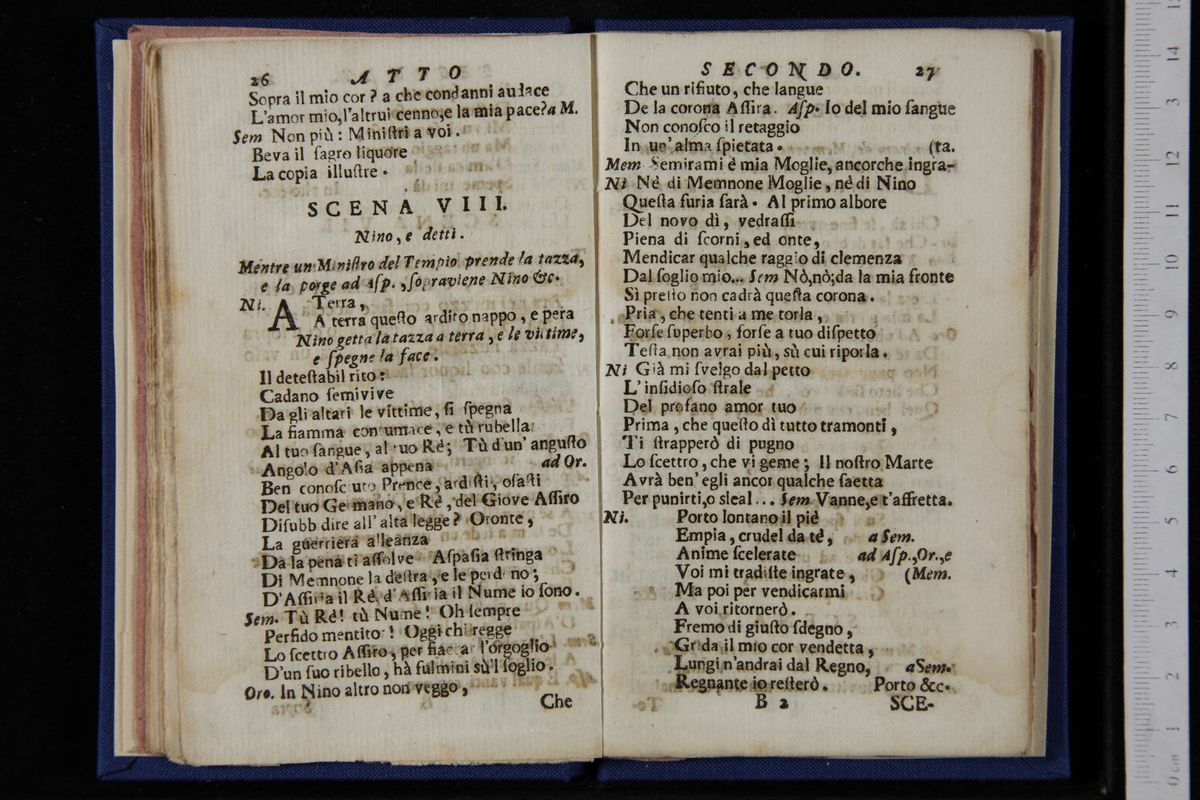 26 ATTO
Sopra il mio cor? a che condanni audace
L'amor mio, l'altrui cenno, e la mia pace? a M.
Sem Non più: Miniſtri a voi.
Beva il ſagro liquore
La copia illuſtre.
SCENA VIII.
Nino, e detti.
Mentre un Miniſtro del Tempio prende la tazza,
e la porge ad Aſp., ſopraviene Nino &c.
Ni. A Terra,
A terra queſto ardito nappo, e pera
Nino getta la tazza a terra, e le vittime,
e ſpegne la face.
Il deteſtabil rito:
Cadano ſemivive
Da gli altari le vittime, ſi ſpegna
La fiamma contumace, e tù rubella
Al tuo ſangue, al tuo Rè; Tù d'un' anguſto
Angolo d'Aſia appena ad Or.
Ben conoſciuto Prence, ardiſti, oſaſti
Del tuo Germano, e Rè, del Giove Aſſiro
Diſubbidire all' alta legge? Oronte,
La guerriera alleanza
Da la pena ti aſſolve Aſpaſia ſtringa
Di Memnone la deſtra, e le perdono;
D'Aſſiria il Rè, d'Aſſiria il Nume io ſono.
Sem. Tù Rè! tù Nume! Oh ſempre
Perfido mentitor! Oggi chi regge
Lo ſcettro Aſſiro, per fiaccar l'orgoglio
D'un ſuo ribello, hà fulmini sù'l ſoglio.
Oro. In Nino altro non veggo,
Che
SECONDO. 27
Che un rifiuto, che langue
De la corona Aſſira. Aſp. Io del mio ſangue
Non conoſco il retaggio
In un' alma ſpietata. (ta.
Mem Semirami è mia Moglie, ancorche ingra-
Ni Nè di Memnone Moglie, nè di Nino
Queſta furia ſarà. Al primo albore
Del novo dì, vedraſſi
Piena di ſcorni, ed onte,
Mendicar qualche raggio di clemenza
Dal ſoglio mio... Sem Nò, nò; da la mia fronte
Sì preſto non cadrà queſta corona.
Pria, che tenti a me torla,
Forſe ſuperbo, forſe a tuo diſpetto
Teſta non avrai più, sù cui riporla.
Ni Già mi ſvelgo dal petto
L' inſidioſo ſtrale
Del profano amor tuo
Prima, che queſto dì tutto tramonti,
Ti ſtrapperò di pugno
Lo ſcettro, che vi geme; Il noſtro Marte
Avrà ben' egli ancor qualche ſaetta
Per punirti, o sleal... Sem Vanne, e t'affretta.
Ni. Porto lontano il piè
Empia, crudel da tè, a Sem.
Anime ſcelerate ad Aſp., Or., e
Voi mi tradiſte ingrate, (Mem.
Ma poi per vendicarmi
A voi ritornerò.
Fremo di giuſto ſdegno,
Grida il mio cor vendetta,
Lungi n'andrai dal Regno, a Sem.
Regnante io reſterò. Porto &c.
B 2 SCE-